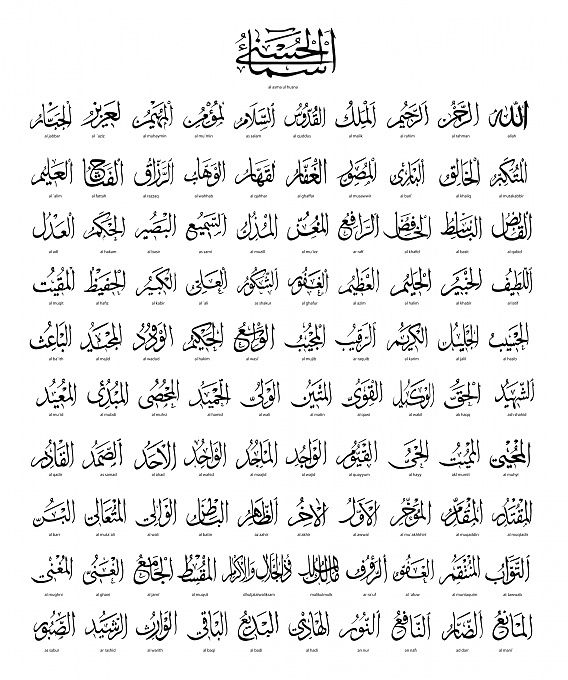 أسماء الحسنى
al asma ul husna
الله الرحمن الرحيم الملك القدوس السلام المؤمن المهيمن العزيز الجبار
allah al rahman al rahim al malik al quddus as salam al mu'min al muhaymin al `aziz al jabbar
المتكبر الخالق البارئ المصور الغفار القهار الوهاب الرزاق الفتاح العليم
al mutakabbir al khaliq al bari' al musawwir al ghaffar al qahhar al wahhab al razzaq al fattah al `alim
القابض الباسط الخافض الرافع المعز المذل السميع البصير الحكم العدل
al qabid al basit al khafid ar rafi' al mu'izz al muzill as sami al basir al hakam al adl
اللطيف الخبير الحليم العظيم الغفور الشكور العلي الكبير الحفيظ المقيت
al latif al khabir al halim al azim al ghafur as shakur al `ali al kabir al hafiz al muqit
الحسيب الجليل الكريم الرقيب المجيب الواسع الحكيم الودود المجيد الباعث
al hasib al jalil al karim ar raquib al mujib al wasi' al hakim al wadud al majid al ba'ith
الشهيد الحق الوكيل القوي المتين الولي الحميد المحصي المبدئ المعيد
ash shahid al haqq al wakil al qawi al matin al wali al hamid al muhsi al mubdi al mu'id
المحيي المميت الحي القيوم الواجد الماجد الواحد الأحد الصمد القادر
al muhyi al mumit al hayy al quyyum al wajid al maajid al wahid al ahad as samad al qadir
المقتدر المقدم المؤخر الأول الآخر الظاهر الباطن الوالي المتعالي البر
al muqtadir al muqaddim al mu'akhkhir al awwal al akhir az zahir al batin al wali al muta'ali al barr
التواب المنتقم العفو الرؤوف مالك الملك ذو الجلال والإكرام المقسط الجامع الغني المغني
at tawwab al muntaquim al `afuw ar ra'uf al muqsit al jami' al ghani al mughni
المانع الضار النافع النور الهادي البديع الباقي الوارث الرشيد الصبور
al mani' ad darr an nafi an nur al hadi al badi al baqi al warith ar rashid as sabur